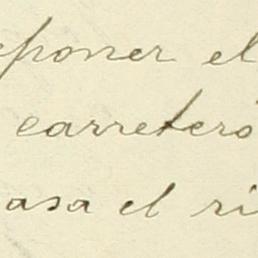 eponer el
carreteró
asa el ri